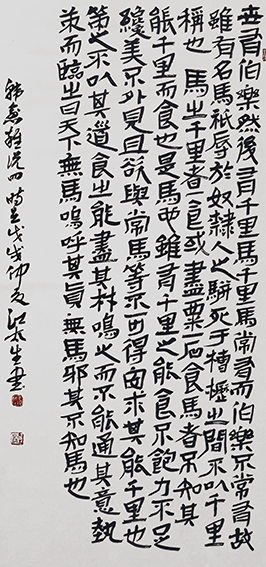 世有伯樂然後有千里馬千里馬常有而伯樂不常有故
雖有名馬祇辱於奴隸人之駢死于槽櫪之間不以千里
稱也馬之千里者一食或盡粟一石食馬者不知其
能千里而食也是馬也雖有千里之能食不飽力不足
纔美不外見且欲與常馬等不可得安求其能千里也
策之不以其道食之能盡其材鳴之而不能通其意執
策而臨之曰天下無馬嗚呼其真無馬邪其不知馬也
韓愈雜說四時在戊戌仲夏江本生書